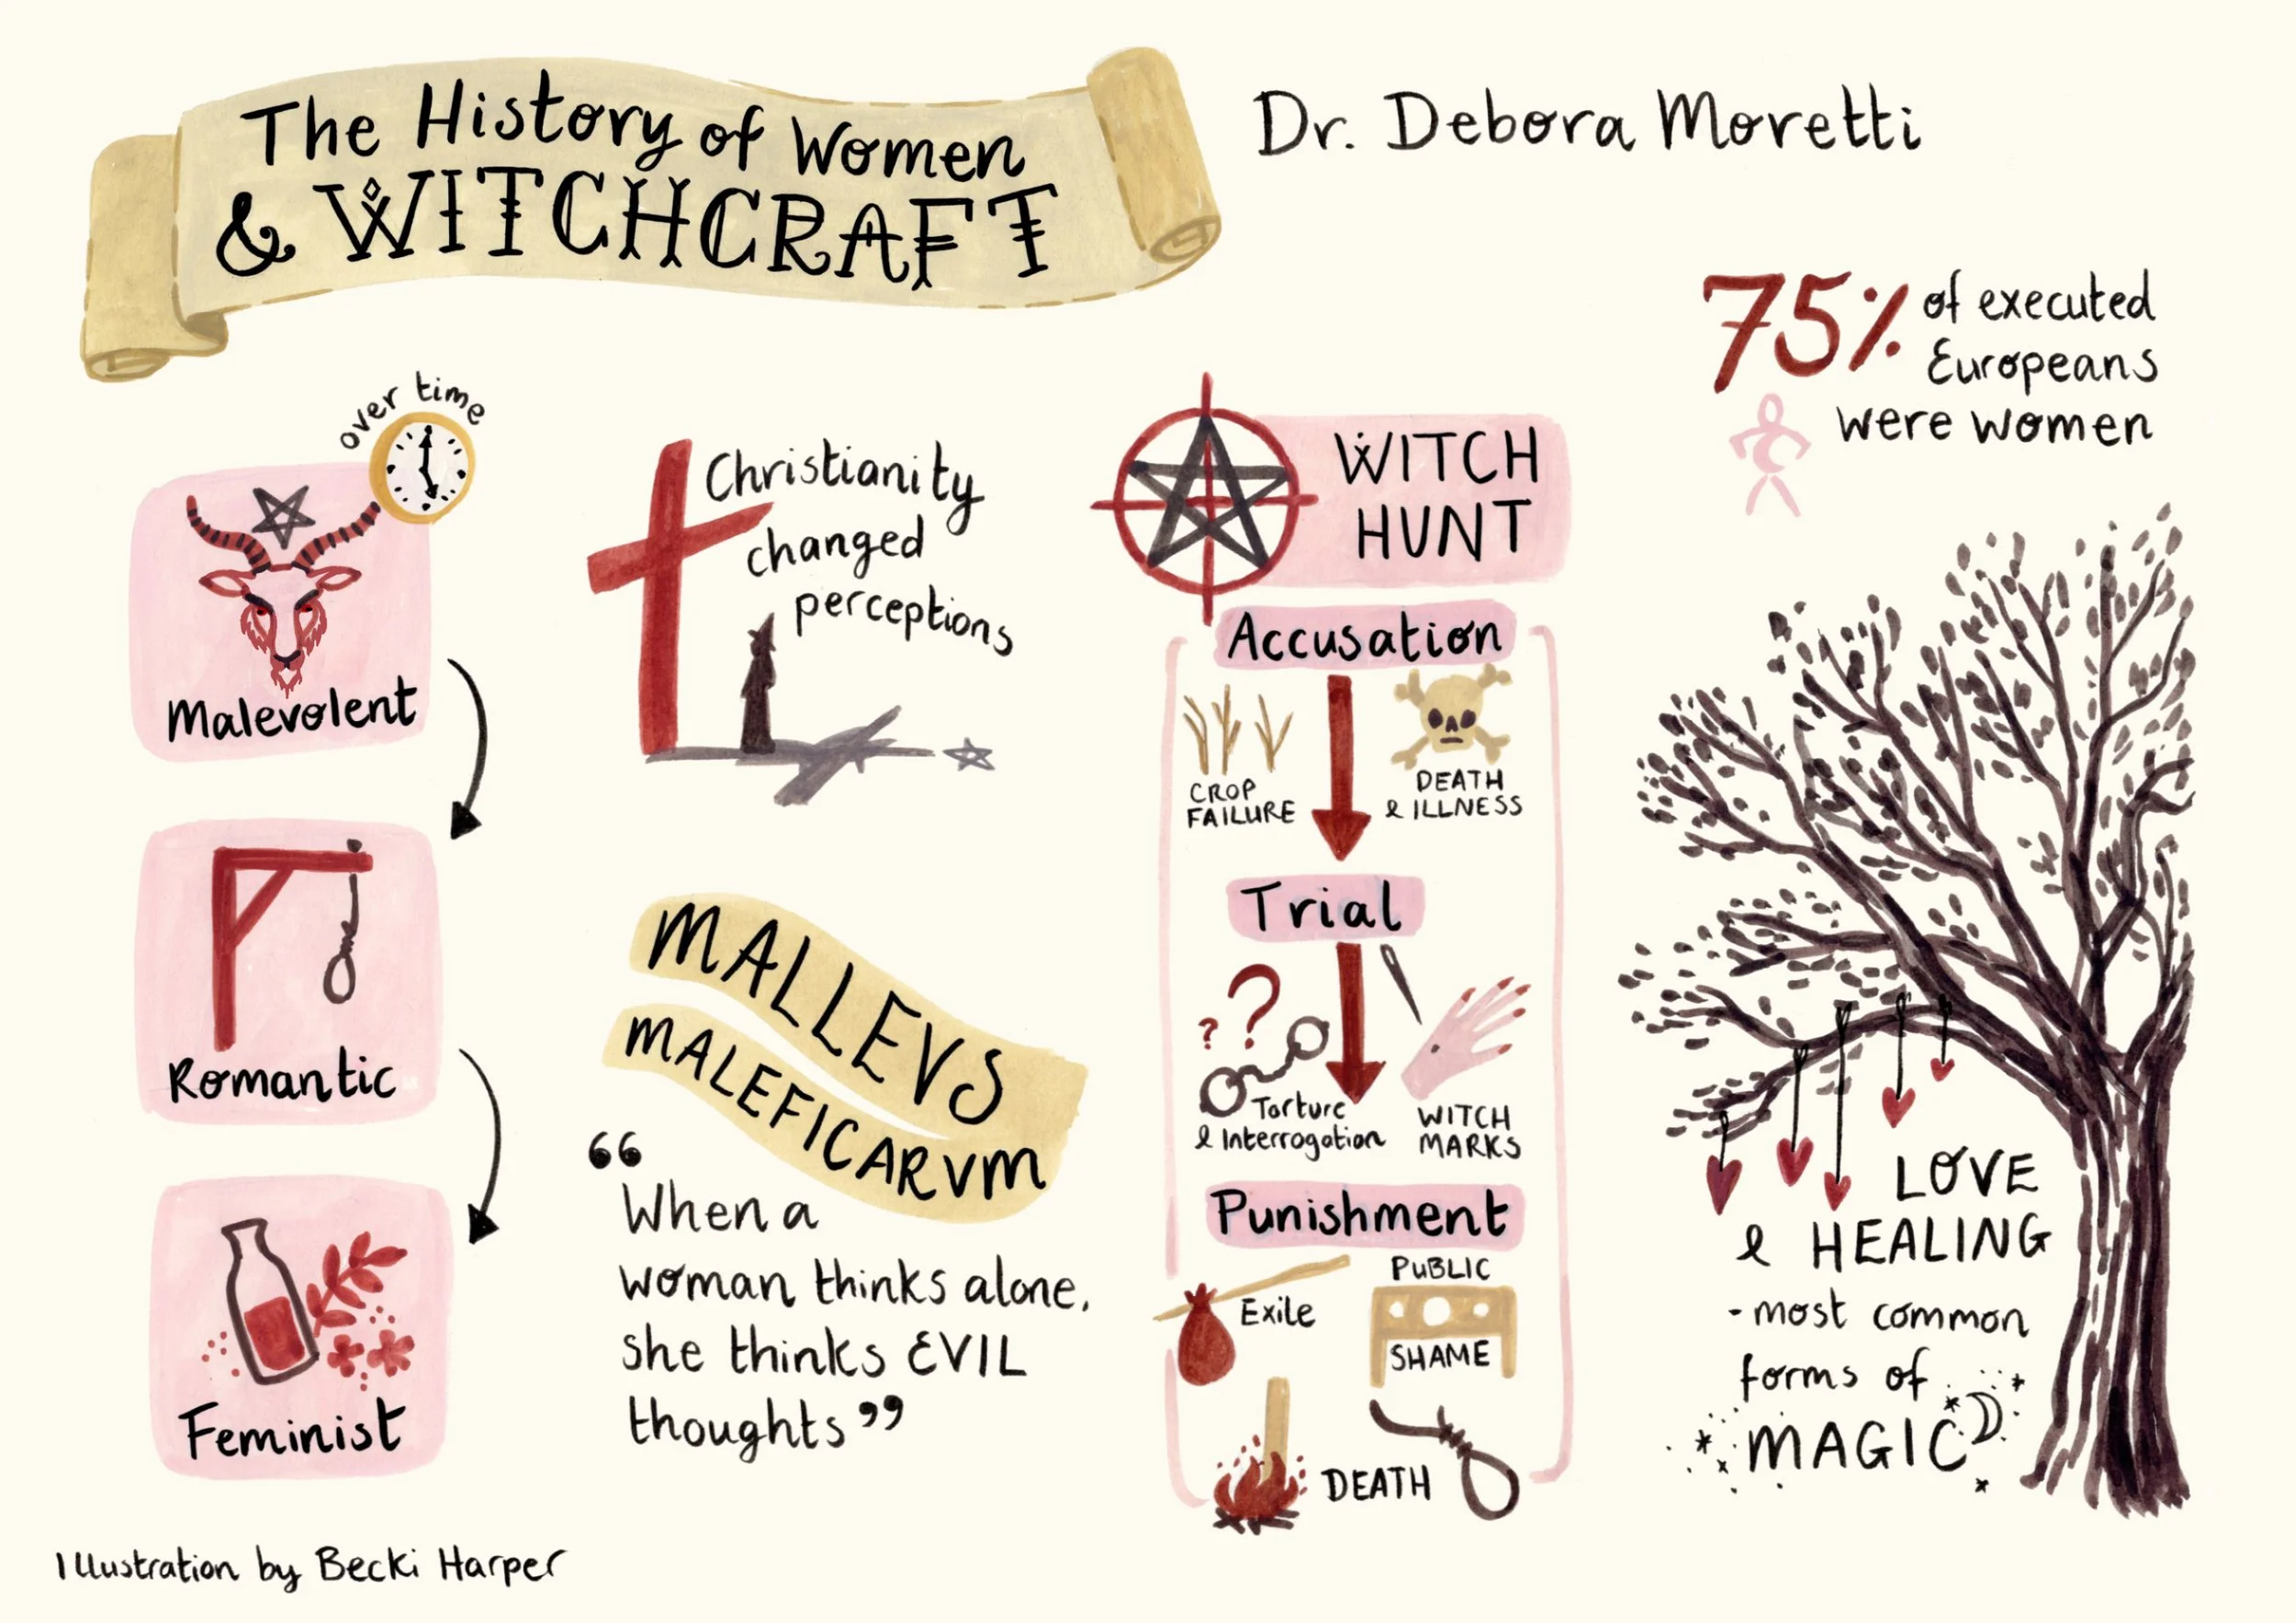 The History of Women
& WITCHCRAFT
Dr. Debora Moretti
over time
Malevolent
Romantic
Feminist
Christianity
changed
perceptions
MALLEVS
MALEFICARVM
“When a
woman thinks alone,
she thinks EVIL
thoughts”
WITCH
HUNT
Accusation
CROP
FAILURE
DEATH
& ILLNESS
Trial
? ?
Torture
& Interrogation
WITCH
MARKS
Punishment
Exile
PUBLIC
SHAME
DEATH
75% of executed
Europeans
were women
LOVE
& HEALING
- most common
forms of
MAGIC
Illustration by Becki Harper